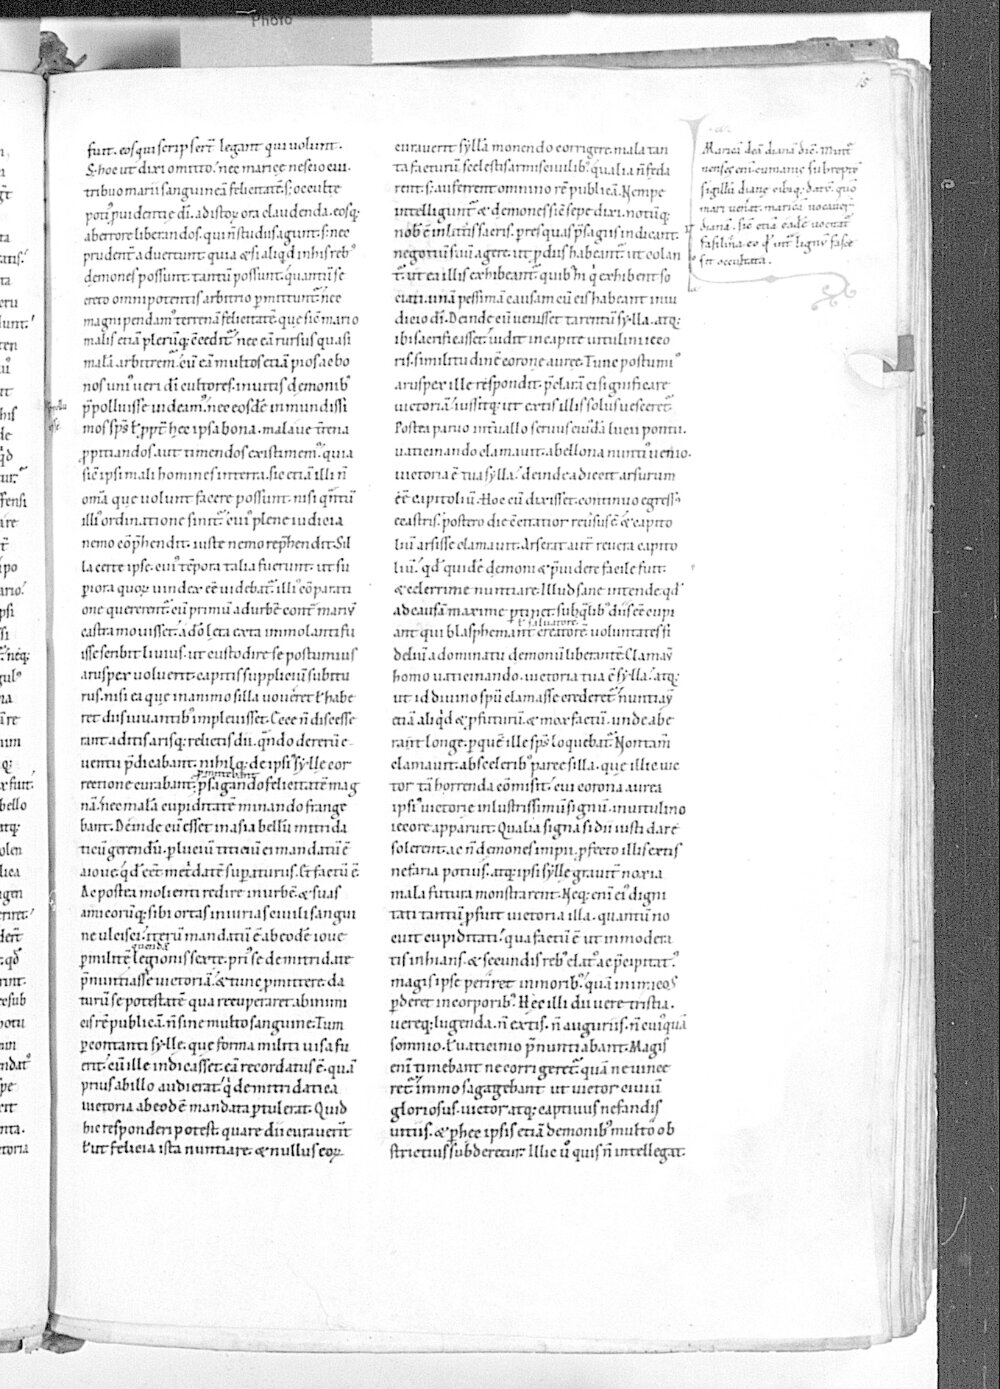 Photo
15
fuīt. eosqui scripserт̄ legant qui volunt.
S; hoc ut dixi omitto. nec maricę nescio cui.
tribuo marii sanguineā felicitatē. s; occultę
poti᷒ ꝓuidentię dī. ad istoꝝ ora claudenda. eosq;
ab errore liberandos. qui ñ studiis agunt. s; hęc
prudent̄ aduertunt. quia & si aliqͥd in his reb᷒
demones possunt. tantū possunt. quantū se
creto omnipotentis arbitrio ꝑmittunt̄. nec
magni pendam᷒ terrenā felicitatē. que sic̄ mario
malis etiā plerūq; c̄cedit̄. nec eā rursus quasi
malā arbitrem̄. cū eā multos etiā pios ac bo
nos uni᷒ ueri dī cultores. inuitis demonib᷒
p̄polluisse uideam᷒. nec eosdē inmundissi
mos sps̄ ł ꝓpt̄ hęc ipsa bona. malaue t̄rena
ꝓpitiandos. aut timendos existimem᷒. quia
sic̄ ipsi mali homines in terra. sic etiā illi ñ
om̄a que uolunt facere possunt. nisi qͣntū
illi᷒ ordinatione sinit̄. cui᷒ plene iudicia
nemo cōp̄hendit. iuste nemo rep̄hendit. Sil
la certe ipse. cui᷒ tēpora talia fuerunt. ut su
ꝑiora quoꝝ uindex ēē uidebat̄. illi᷒ cōparati
one quererent̄. cū primū ad urbē cont̄ mariū
castra mouisset. adō lęta exta immolanti fu
isse scribit liuius. ut custodire se postumius
aruspex voluerit. capitis suppliciū subitu
rus. nisi ea que in animo silla vouēret ł habe
ret diis iuuantib᷒ impleuisset. Ecce ñ discesse
rant aditis arisq; relictis dii. qͣndo de rerū e
uentu p̄dicabant. nihilq; de ipsi᷒ sylle cor
ꝓmittebant
rectione curabant. p̄sagando felicitatē mag
nā. nec malā cupiditatē minando frange
bant. Deinde cū esset in asia bellū mitrida
ticū gerendū. ꝑ luciū titiū ei mandatū ē
a ioue. qͩ ēēt metͥdatē suꝑaturus. Et factū ē.
Ac postea molienti redire in urbē. & suas
amicorūq; sibi ortas iniurias ciuili sangui
ne ulcisci. iterū mandatū ē ab eodē ioue
quendā
ꝑ militē legionis sexte. pri᷒ se de mitridate
p̄nuntiasse uictoriā. & tunc ꝓmittere. da
turū se potestatē qua recuperaret ab inimi
cis rē publicā. ñ sine multo sanguine. Tum
ꝑcontanti sylle. que forma militi uisa fu
erit. cū ille indicasset. eā recordatus ē. quā
prius ab illo audierat. qͥ de mitridatica
uictoria ab eodē mandata ꝑtulerat. Quid
hic responderi potest. quare dii curauerīt
ł ut felicia ista nuntiare. & nullus eoꝝ
curauerit syllā monendo corrigere. mala tan
ta facturū scelestis armis ciuilib᷒. qualia ñ fęda
rent. s; auferrent omnino rē publicā. Nempe
intelligunt̄ & demones sic̄ sepe dixi. notūq;
nob̄ ē in litt̄is sacris. res quas p̄sagiis indicant.
negotiū suū agere. ut ꝓ diis habeant̄. ut colan
t̄. ut ea illis exhibeant̄. quib᷒ hi qͥ exhibent so
ciati. unā pessimā causam cū eis habeant iuu
dicio dī. Deinde cū uenisset tarentū sylla. atq;
ibi sacrificasset. uidit in capite uitulini ieco
ris. similitudinē corone auree. Tunc postumi᷒
aruspex ille respondit. p̄clarā ei significare
uictoriā. iussitq; ut extis illis solus uesceret̄.
Postea paruo int̄uallo seruus cuidā lucii pontii.
uaticinando clamauit. a bellona nunti᷒ uenio.
uictoria ē tua sylla. deinde adiecit arsurum
ēē capitoliū. Hoc cū dixisset. continuo egress᷒
e castris. postero die c̄citatior reūsus ē. & capito
liū arsisse clamauit. Arserat aut̄ reuera capito
liū. qͩ quidē demoni & p̄uidere facile fuit.
& celerrime nuntiare. Illud sane intende. qͩ
ad causā maxime ꝑtinet. sub qͣlib᷒ diis ēē cupi
ł saluatorē.
ant qui blasphemant creatorē. voluntates fi
deliū a dominatu demoniū liberantē. Clamaũ
homo uaticinando. uictoria tua ē sylla. atq;
ut id diuino spū clamasse crederet̄. nuntiaũ
etiā aliqͥd & ꝓpe futurū. & mox factū. unde abe
rant longe. ꝑ quē ille sps̄ loquebat̄. Non tam̄
clamauit. ab scelerib᷒ parce silla. que illic uic
tor tā horrenda cōmisit. cui corona aurea
ipsi᷒ uictorię inlustrissimū signū. in uitulino
iecore apparuit. Qualia signa si dii iusti dare
solerent. ac ñ demones impii. ꝓfecto illis extis
nefaria potius. atq; ipsi sylle grauit̄ noxia
mala futura monstrarent. Neq; enī ei᷒ digni
tati tantū ꝓfuit uictoria illa. quantū no
cuit cupiditati. qua factū ē ut inmodera
tis inhians. & secundis reb᷒ elat᷒ ac p̄cipitat᷒.
magis ipse periret in morib᷒. quā inimicos
ꝑderet in corporib᷒. Hęc illi dii uere tristia.
uereq; lugenda. ñ extis. ñ auguriis. ñ cui᷒quā
somnio. ł uaticinio p̄nuntiabant. Magis
enī timebant ne corrigeret̄. quā ne uince
ret̄. immo sag agebant ut uictor ciuiū
gloriosus. uictor atq; captiuus nefandis
uitiis. & ꝑ hęc ipsis etiā demonib᷒ multo ob
strictius subderetur. Illic ů quis ñ intellegat.
Maricā deā dianā dic̄. Mint̄
nensęs enī cumanis subrepto
sigillū dianę cibiq; datū. quo
mari uenit. maricā vocauer̄